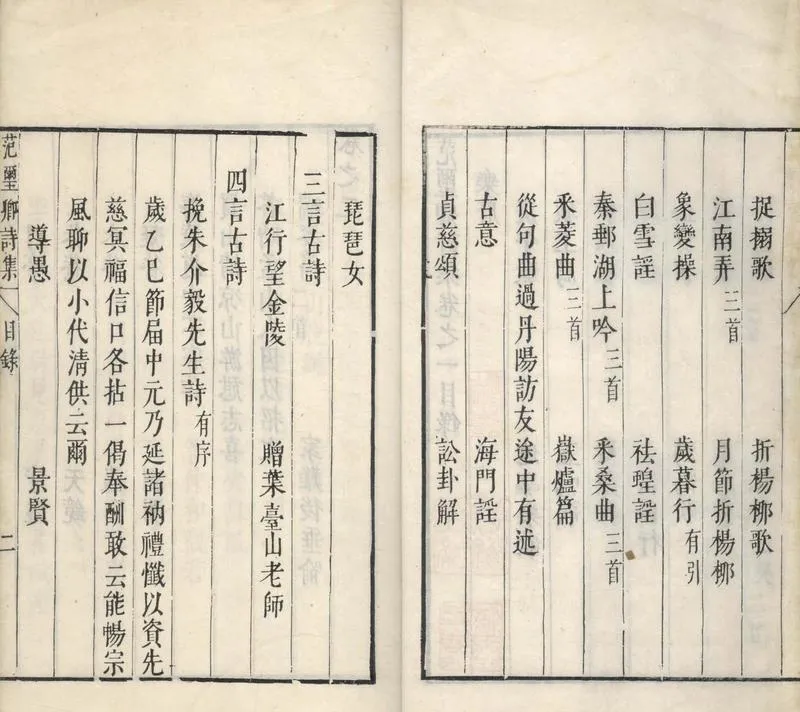 捉搦歌 折楊栁歌
江南弄三首 月節折楊栁
象變操 歲暮行有引
白雪謡 祛蝗謡
秦郵湖上吟三首 采桑曲三首
采菱曲三首 嶽爐篇
從句曲過丹陽訪友途中有述
古意 海門謡
貞慈頌 訟卦解
琵琶女
三言古詩
江行望金陵 贈葉臺山老師
四言古詩
挽朱介毅先生詩有序
歲乙巳節届中元乃延諸衲禮懺以資先
慈冥福信口各拈一偈奉酬敢云能暢宗
風聊以小代清供云爾
導愚 景賢
范璽卿詩集 目錄 二